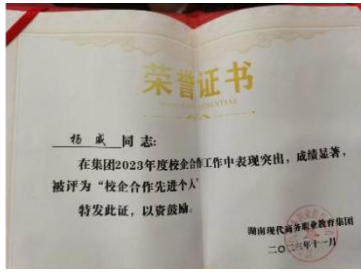 荣誉证书
杨威 同志:
在集团2023年度校企合作工作中表现突出，成绩显著，
被评为“校企合作先进个人”
特发此证，以资鼓励。
湖南现代商务职业教育集团